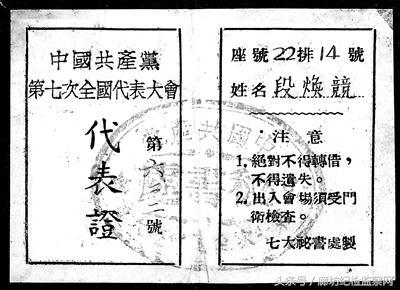 中國共產黨
第七次全國代表大會
代表證
第六 號
座號22排14號
姓名 段煥競
·注意
1. 絕對不得轉借，
不得遺失。
2. 出入會場須受門
衛檢查。
七大祕書處製
头条号 / 廊坊纪检监察网